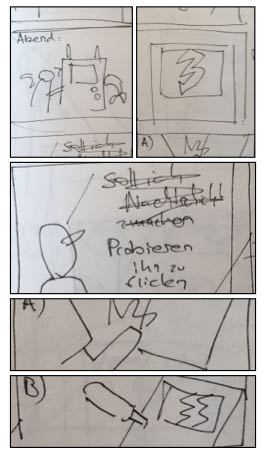 Abend:
Soll ich
A)
Soll ich
Nachtlicht
machen
Probieren
ihn zu
flicken
A)
B)